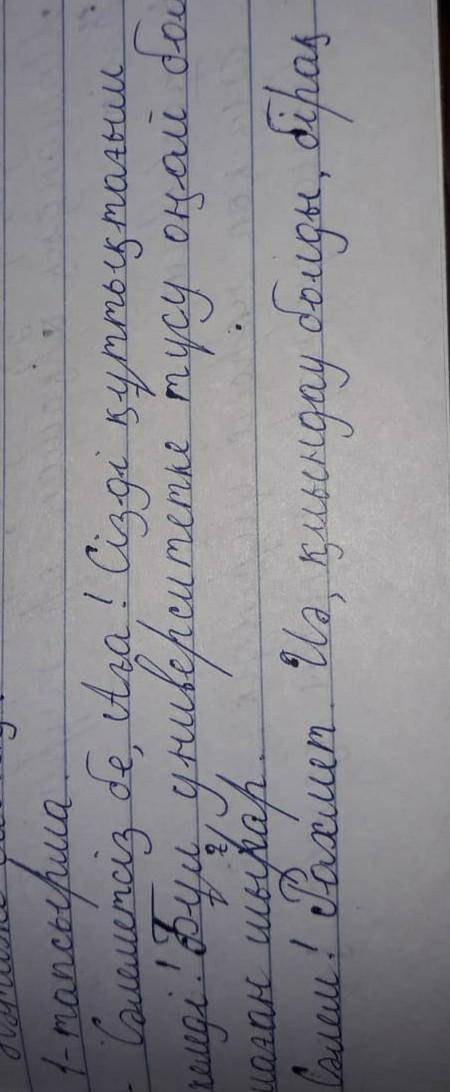 1-тапсырма
- Сәлеметсіз бе, Аға! Сізді құттықтағым
келеді! Бұл университетке түсу оңай бол
маған шығар.
Сәлем! Рахмет. Иә, қиындау болды, бірақ